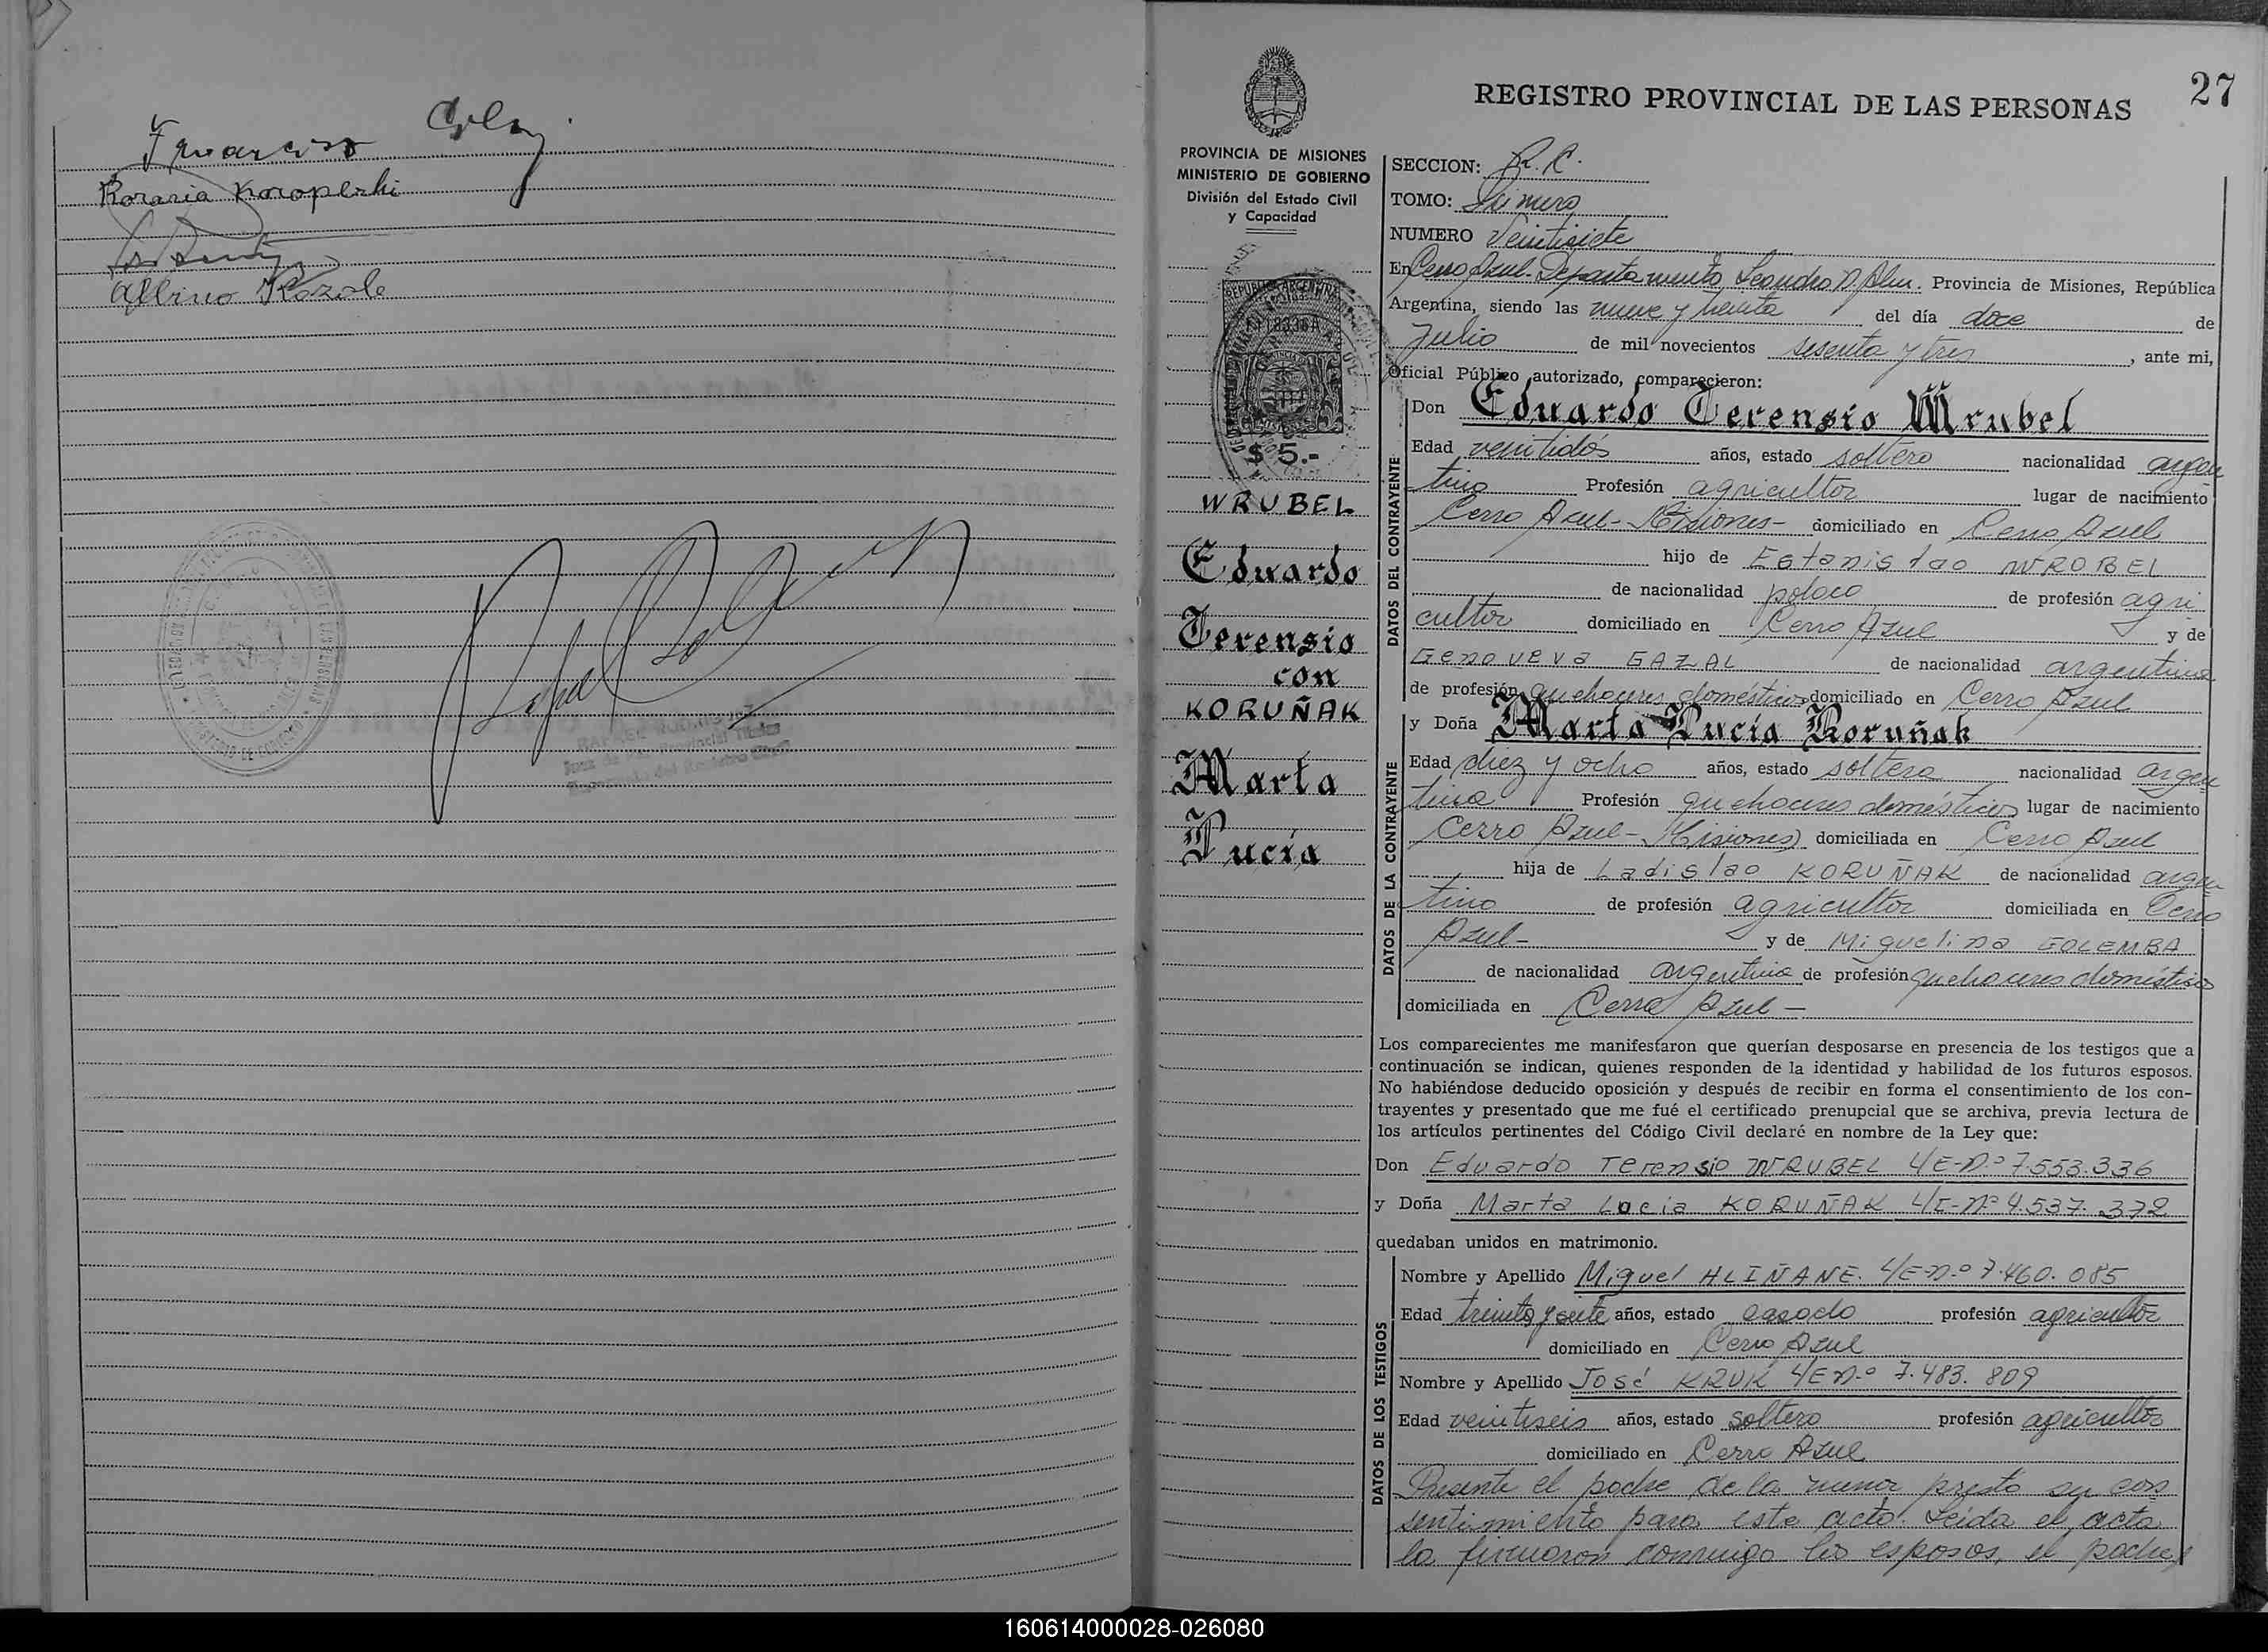 Rosaria Koropeski
Albino Kozole
27
REGISTRO PROVINCIAL DE LAS PERSONAS
PROVINCIA DE MISIONES
MINISTERIO DE GOBIERNO
División del Estado Civil
y Capacidad
$ 5.-
WRUBEL
Eduardo
Terensio
con
KORUÑAK
Marta
Lucía
SECCION: R. C.
TOMO: Primero
NUMERO Veintisiete
En Cerro Azul - Departamento Leandro N. Alem. Provincia de Misiones, República
Argentina, siendo las nueve y treinta del día doce de
Julio de mil novecientos sesenta y tres, ante mi,
Oficial Público autorizado, comparecieron:
DATOS DEL CONTRAYENTE
Don Eduardo Terensio Wrubel
Edad veintidós años, estado soltero nacionalidad argen
tino Profesión agricultor lugar de nacimiento
Cerro Azul - Misiones - domiciliado en Cerro Azul
hijo de Estanislao WROBEL
de nacionalidad polaco de profesión agri
cultor domiciliado en Cerro Azul y de
Genoveva GAZAL de nacionalidad argentina
de profesión quehaceres domésticos domiciliado en Cerro Azul
DATOS DE LA CONTRAYENTE
y Doña Marta Lucía Koruñak
Edad diez y ocho años, estado soltera nacionalidad argen
tina Profesión quehaceres domésticos lugar de nacimiento
Cerro Azul - Misiones) domiciliada en Cerro Azul
hija de Ladislao KORUÑAK de nacionalidad argen
tino de profesión agricultor domiciliada en Cerro
Azul - y de Miguelina GOLEMBA
de nacionalidad argentina de profesión quehaceres domésticos
domiciliada en Cerro Azul -
Los comparecientes me manifestaron que querían desposarse en presencia de los testigos que a
continuación se indican, quienes responden de la identidad y habilidad de los futuros esposos.
No habiéndose deducido oposición y después de recibir en forma el consentimiento de los con-
trayentes y presentado que me fué el certificado prenupcial que se archiva, previa lectura de
los artículos pertinentes del Código Civil declaré en nombre de la Ley que:
Don Eduardo Terensio WRUBEL L/E-N.º 7.553.336
y Doña Marta Lucia KORUÑAK L/E-Nº 4.537.372
quedaban unidos en matrimonio.
DATOS DE LOS TESTIGOS
Nombre y Apellido Miguel HLIÑANE. L/E-N.º 7.460.085
Edad treinta y siete años, estado casado profesión agricultor
domiciliado en Cerro Azul
Nombre y Apellido José KRUK L/E N.º 7.483.809
Edad veintiseis años, estado soltero profesión agricultor
domiciliado en Cerro Azul
Presente el padre de la menor presto su con
sentimiento para este acto. Leida el acta
la firmaron conmigo los esposos, el padre,
160614000028-026080